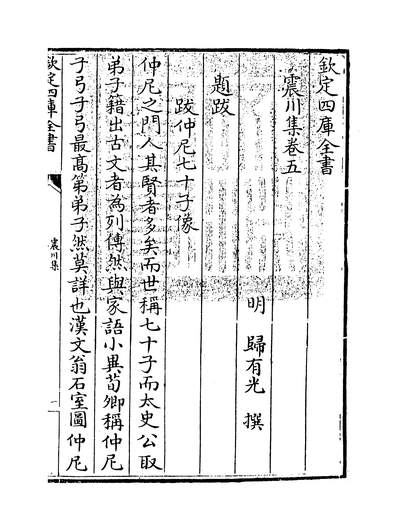 欽定四庫全書
震川集卷五
明 歸有光 撰
題跋
跋仲尼七十子像
仲尼之門人其賢者多矣而世稱七十子而太史公取
弟子籍出古文者為列傳然與家語小異荀卿稱仲尼
子弓子弓最髙第弟子然莫詳也漢文翁石室圖仲尼
欽定四庫全書
震川集
一